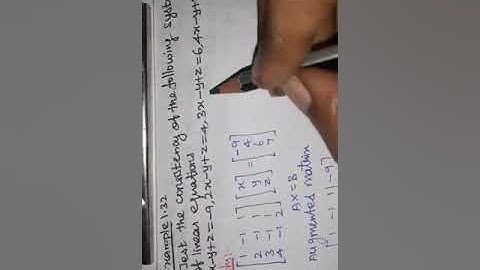 Example 1.32
Test the consistency of the following
of linear equations
x-y+z=-9, 2x-y+z=4, 3x-y+z=6, 4x-y+
[1 -1 1
2 -1 1
3 -1 1
4 -1 2] [x
y
z] = [-9
4
6
7]
AX=B
Augmented matrix
[1 -1 1 | -9]